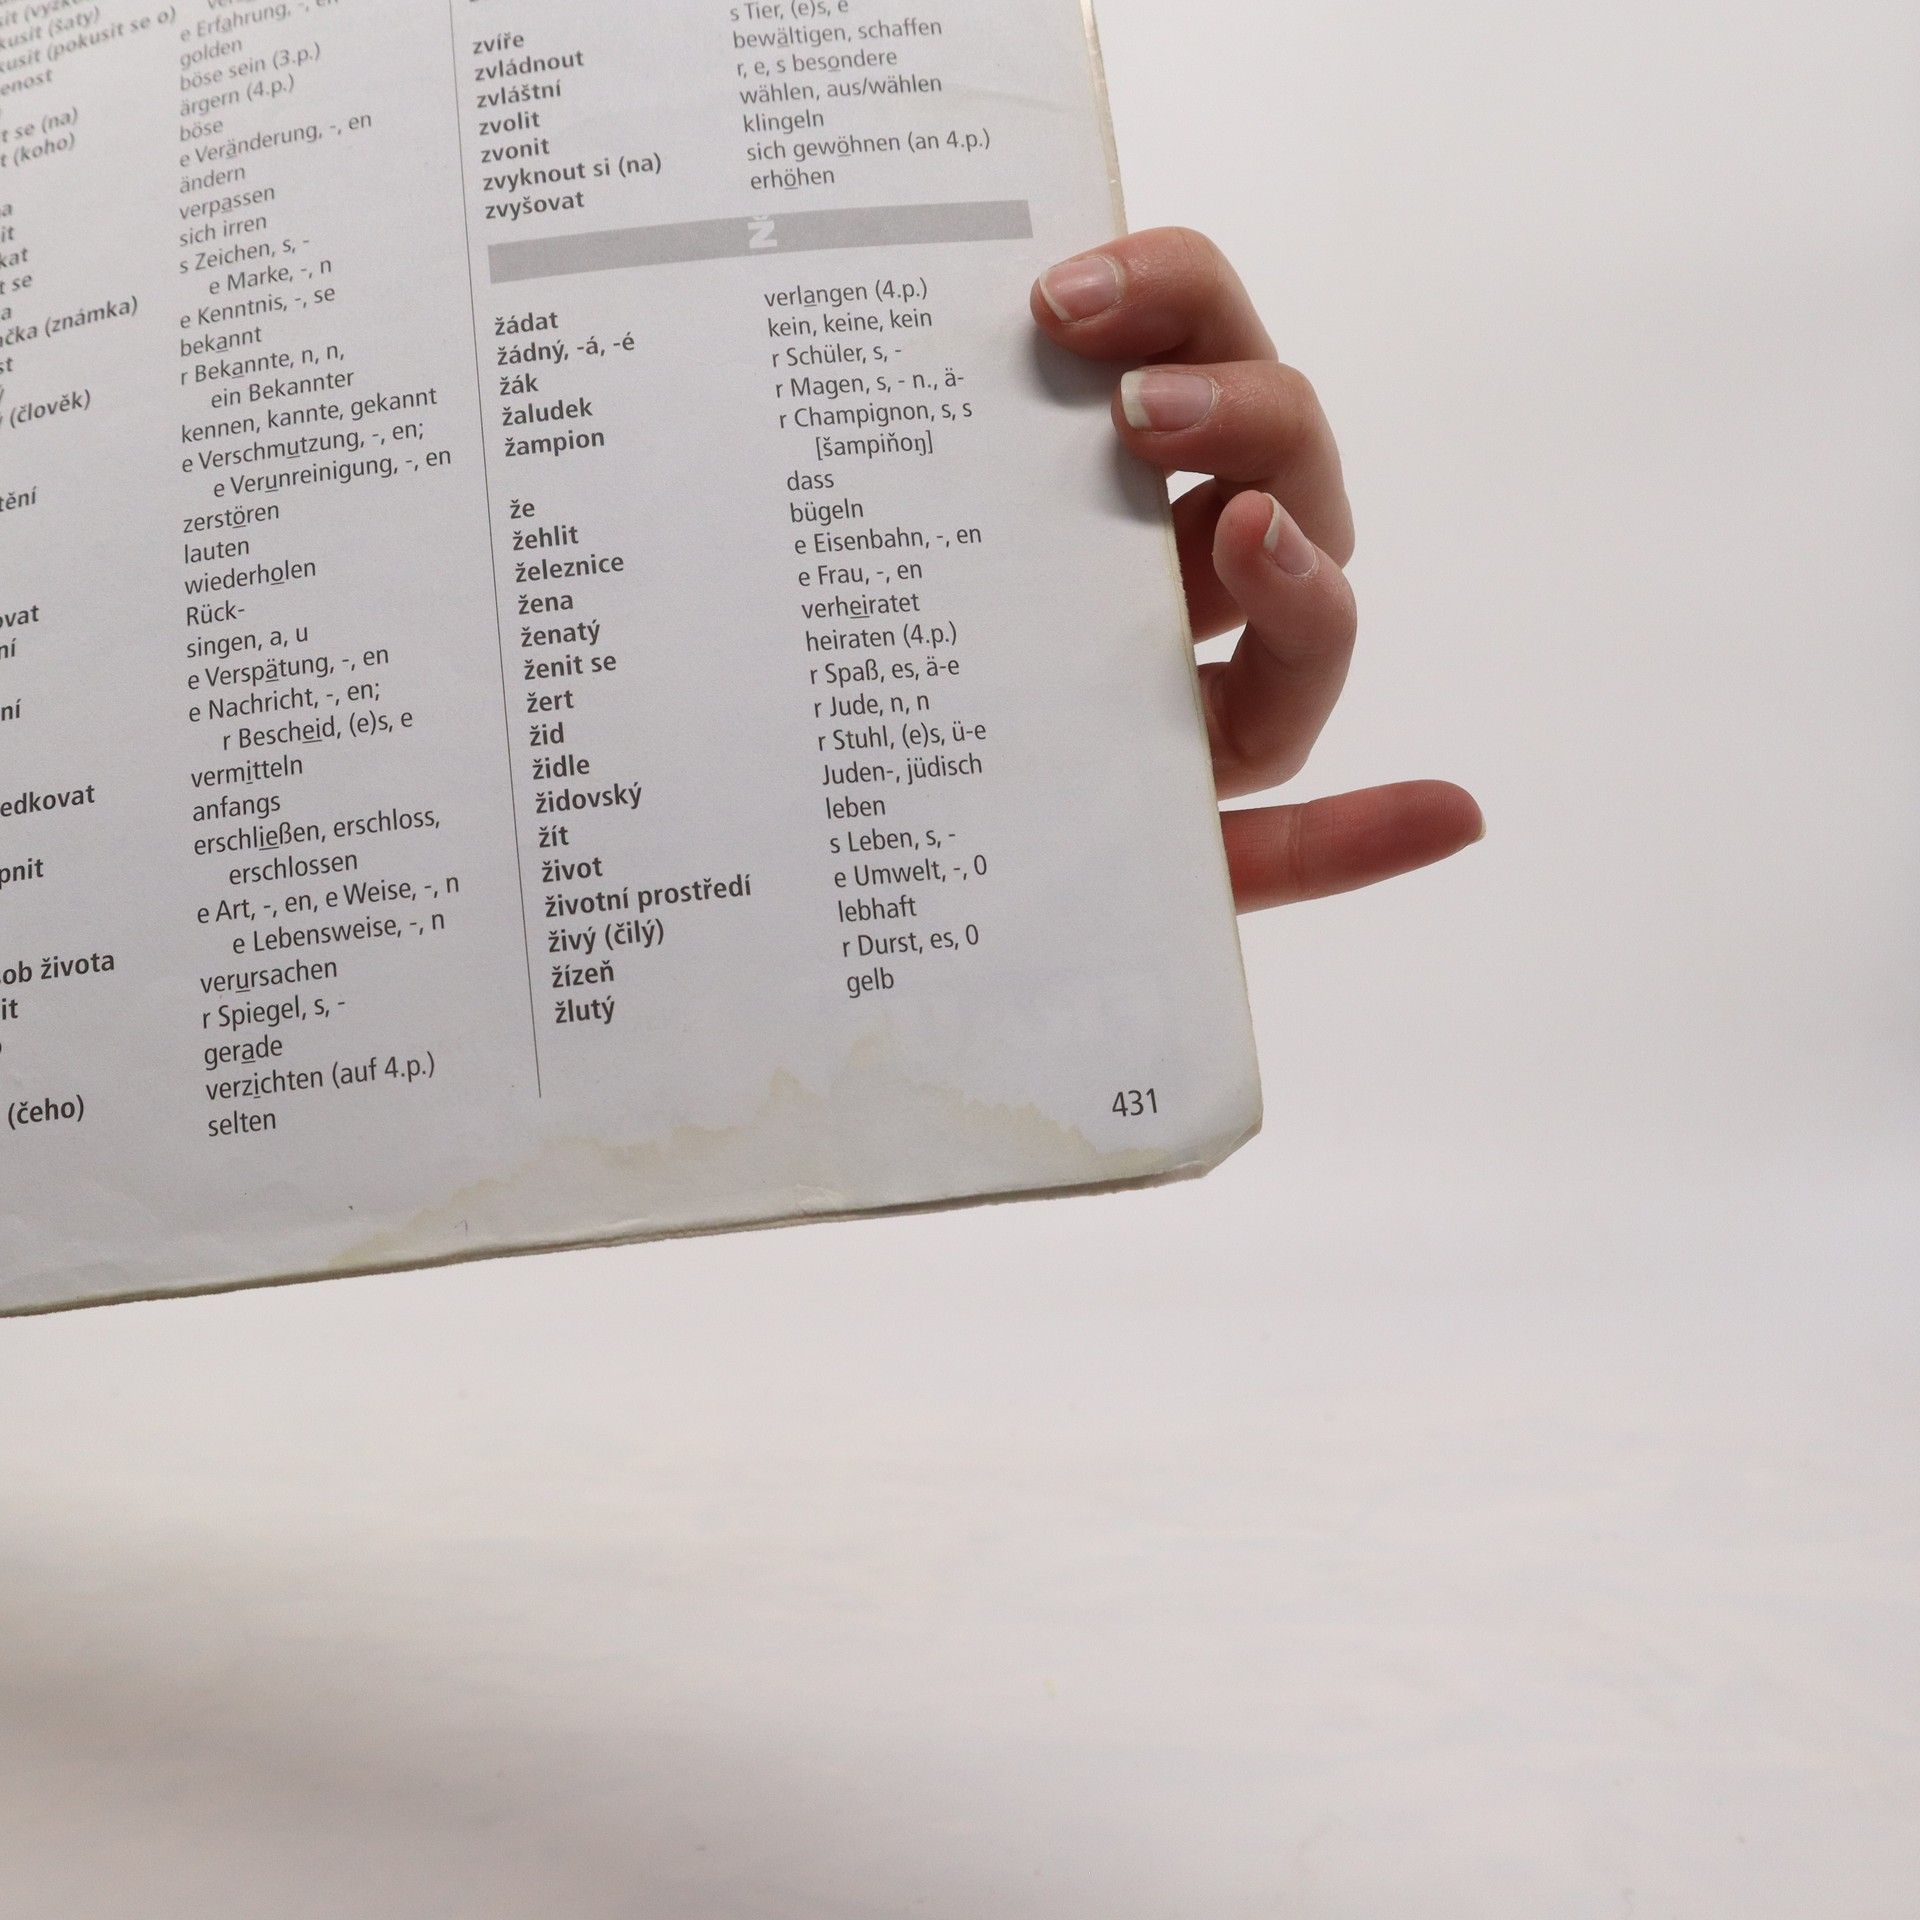 (šaty)
kusit (pokusit se o)
enost
t se (na)
t (koho)
a
it
kat
t se
a
čka (známka)
st
(člověk)
tění
ovat
ní
ní
edkovat
pnit
ob života
it
(čeho)
e Erfahrung, -, en
golden
böse sein (3.p.)
ärgern (4.p.)
böse
e Veränderung, -, en
ändern
verpassen
sich irren
s Zeichen, s, -
e Marke, -, n
e Kenntnis, -, se
bekannt
r Bekannte, n, n,
ein Bekannter
kennen, kannte, gekannt
e Verschmutzung, -, en;
e Verunreinigung, -, en
zerstören
lauten
wiederholen
Rück-
singen, a, u
e Verspätung, -, en
e Nachricht, -, en;
r Bescheid, (e)s, e
vermitteln
anfangs
erschließen, erschloss,
erschlossen
e Art, -, en, e Weise, -, n
e Lebensweise, -, n
verursachen
r Spiegel, s, -
gerade
verzichten (auf 4.p.)
selten
zvíře s Tier, (e)s, e
zvládnout bewältigen, schaffen
zvláštní r, e, s besondere
zvolit wählen, aus/wählen
zvonit klingeln
zvyknout si (na) sich gewöhnen (an 4.p.)
zvyšovat erhöhen
Ž
žádat verlangen (4.p.)
žádný, -á, -é kein, keine, kein
žák r Schüler, s, -
žaludek r Magen, s, - n., ä-
žampion r Champignon, s, s
[šampiňoŋ]
že dass
žehlit bügeln
železnice e Eisenbahn, -, en
žena e Frau, -, en
ženatý verheiratet
ženit se heiraten (4.p.)
žert r Spaß, es, ä-e
žid r Jude, n, n
židle r Stuhl, (e)s, ü-e
židovský Juden-, jüdisch
žít leben
život s Leben, s, -
životní prostředí e Umwelt, -, 0
živý (čilý) lebhaft
žízeň r Durst, es, 0
žlutý gelb
431